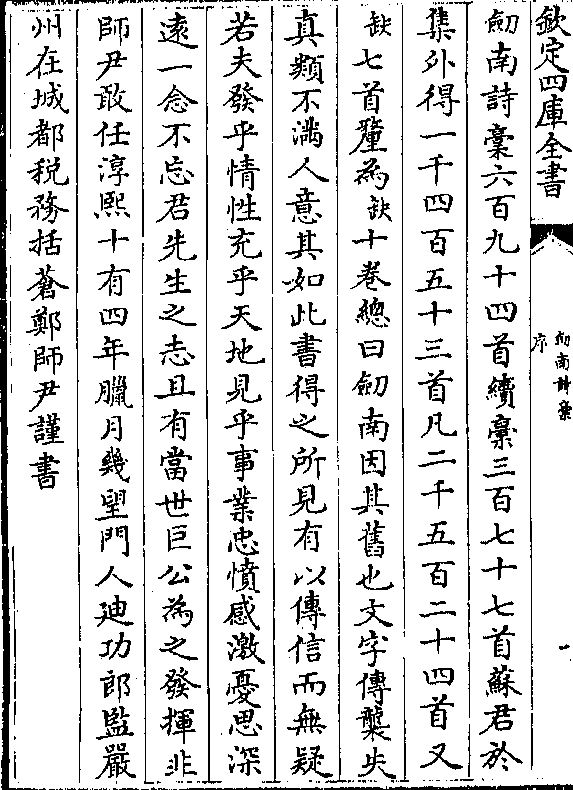 欽定四庫全書
劒南詩稾
序
劒南詩稾六百九十四首續稾三百七十七首蘇君於
集外得一千四百五十三首凡二千五百二十四首又
缺七首釐為缺十卷總曰劒南因其舊也文字傳襲失
真類不滿人意其如此書得之所見有以傳信而無疑
若夫發乎情性充乎天地見乎事業忠憤感激憂思深
遠一念不忘君先生之志且有當世巨公為之發揮非
師尹敢任淳熙十有四年臘月幾望門人廸功郎監嚴
州在城都税務括蒼鄭師尹謹書